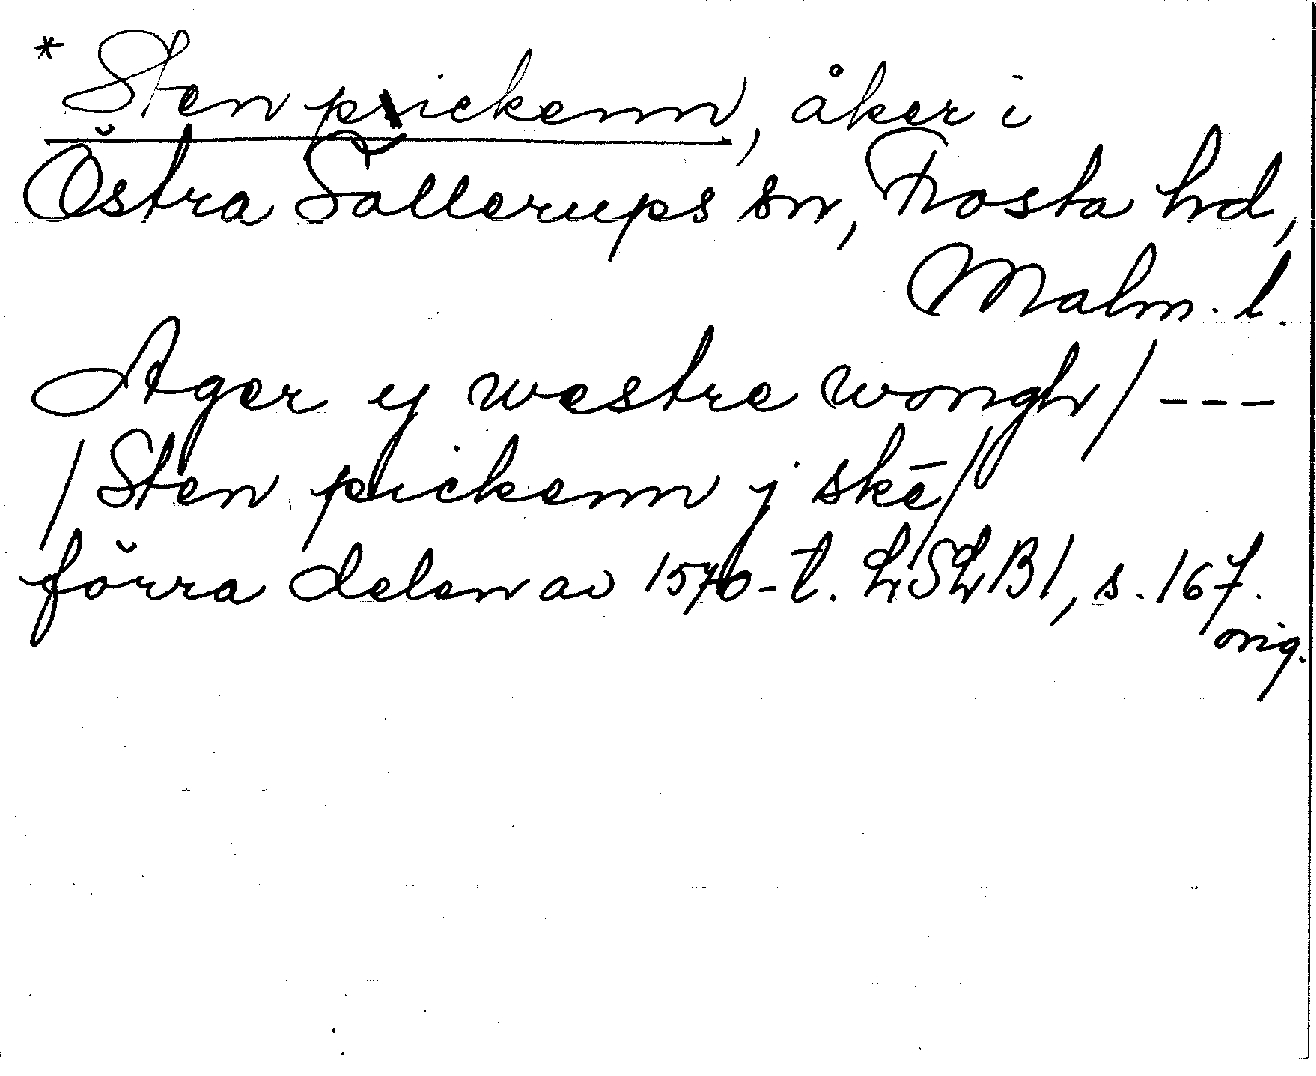 * Sten pickenn, åker i
Östra Sallerups sn, Frosta hd,
Malm. l.
Ager y westre wongh / ---
/ Sten pickenn j skē /
förra delen av 1570-t. LSLB1, s. 167.
orig.